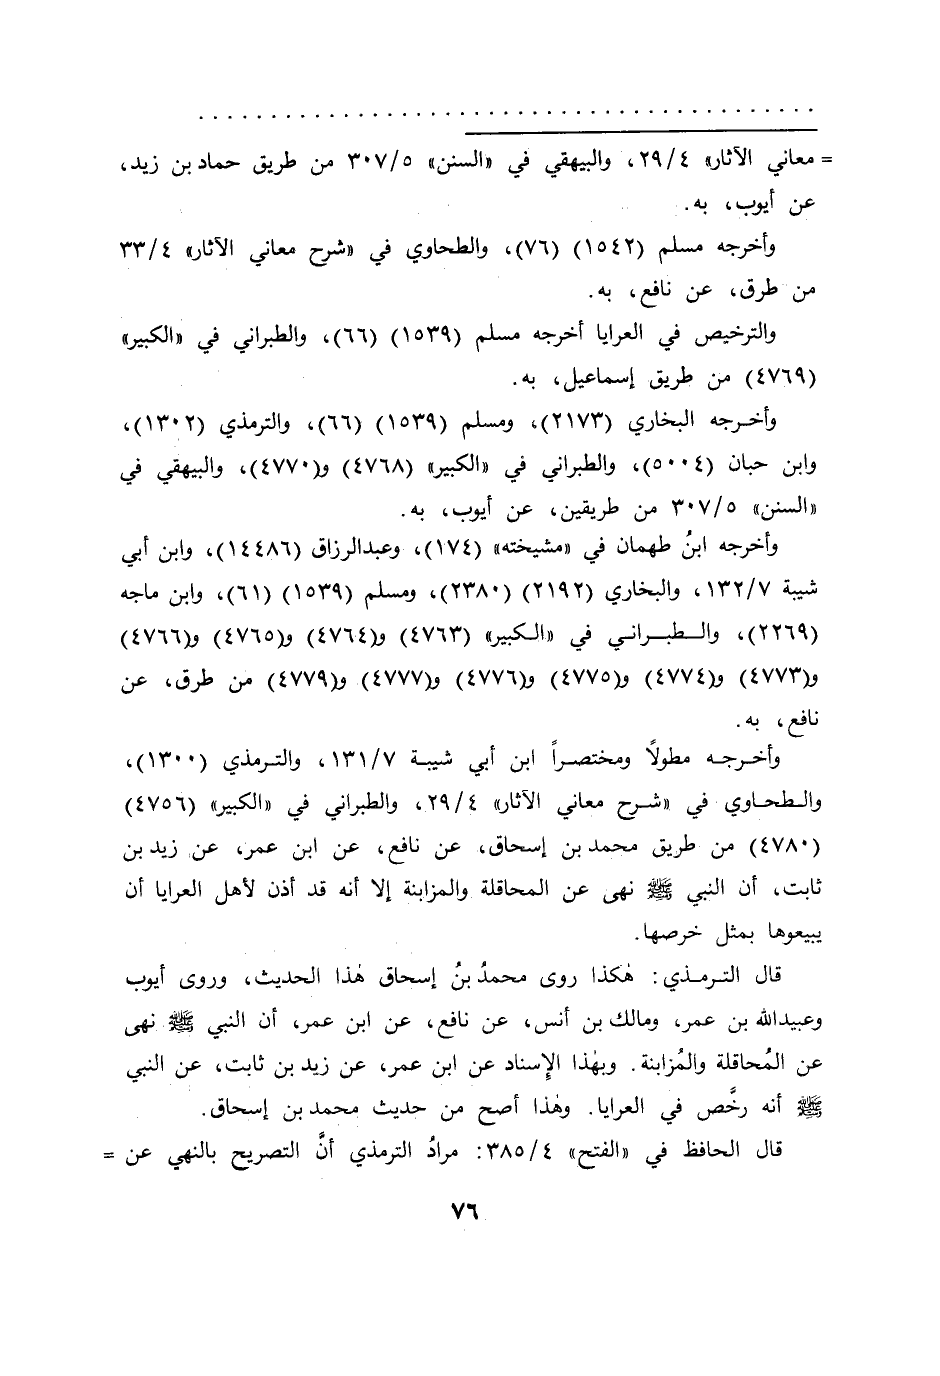 . . . . . . . . . . . . . . . . . . . . . . . . . . . . . . . . . . .
= معاني الآثار» ٢٩/٤، والبيهقي في «السنن» ٣٠٧/٥ من طريق حماد بن زيد،
عن أيوب، به.
وأخرجه مسلم (١٥٤٢) (٧٦)، والطحاوي في «شرح معاني الآثار» ٣٣/٤
من طرق، عن نافع، به.
والترخيص في العرايا أخرجه مسلم (١٥٣٩) (٦٦)، والطبراني في «الكبير»
(٤٧٦٩) من طريق إسماعيل، به.
وأخرجه البخاري (٢١٧٣)، ومسلم (١٥٣٩) (٦٦)، والترمذي (١٣٠٢)،
وابن حبان (٥٠٠٤)، والطبراني في «الكبير» (٤٧٦٨) و(٤٧٧٠)، والبيهقي في
«السنن» ٣٠٧/٥ من طريقين، عن أيوب، به.
وأخرجه ابنُ طهمان في «مشيخته» (١٧٤)، وعبدالرزاق (١٤٤٨٦)، وابن أبي
شيبة ١٣٢/٧، والبخاري (٢١٩٢) (٢٣٨٠)، ومسلم (١٥٣٩) (٦١)، وابن ماجه
(٢٢٦٩)، والطبراني في «الكبير» (٤٧٦٣) و(٤٧٦٤) و(٤٧٦٥) و(٤٧٦٦)
و(٤٧٧٣) و(٤٧٧٤) و(٤٧٧٥) و(٤٧٧٦) و(٤٧٧٧) و(٤٧٧٩) من طرق، عن
نافع، به.
وأخرجه مطولًا ومختصراً ابن أبي شيبة ١٣١/٧، والترمذي (١٣٠٠)،
والطحاوي في «شرح معاني الآثار» ٢٩/٤، والطبراني في «الكبير» (٤٧٥٦)
(٤٧٨٠) من طريق محمد بن إسحاق، عن نافع، عن ابن عمر، عن زيد بن
ثابت، أن النبي ﷺ نهى عن المحاقلة والمزابنة إلا أنه قد أذن لأهل العرايا أن
يبيعوها بمثل خرصها.
قال الترمذي: هٰكذا روى محمدُ بنُ إسحاق هٰذا الحديث، وروى أيوب
وعبيدالله بن عمر، ومالك بن أنس، عن نافع، عن ابن عمر، أن النبي ﷺ نهى
عن المُحاقلة والمُزابنة. وبهٰذا الإسناد عن ابن عمر، عن زيد بن ثابت، عن النبي
ﷺ أنه رخَّص في العرايا. وهٰذا أصح من حديث محمد بن إسحاق.
قال الحافظ في «الفتح» ٣٨٥/٤: مرادُ الترمذي أنَّ التصريح بالنهي عن =
٧٦